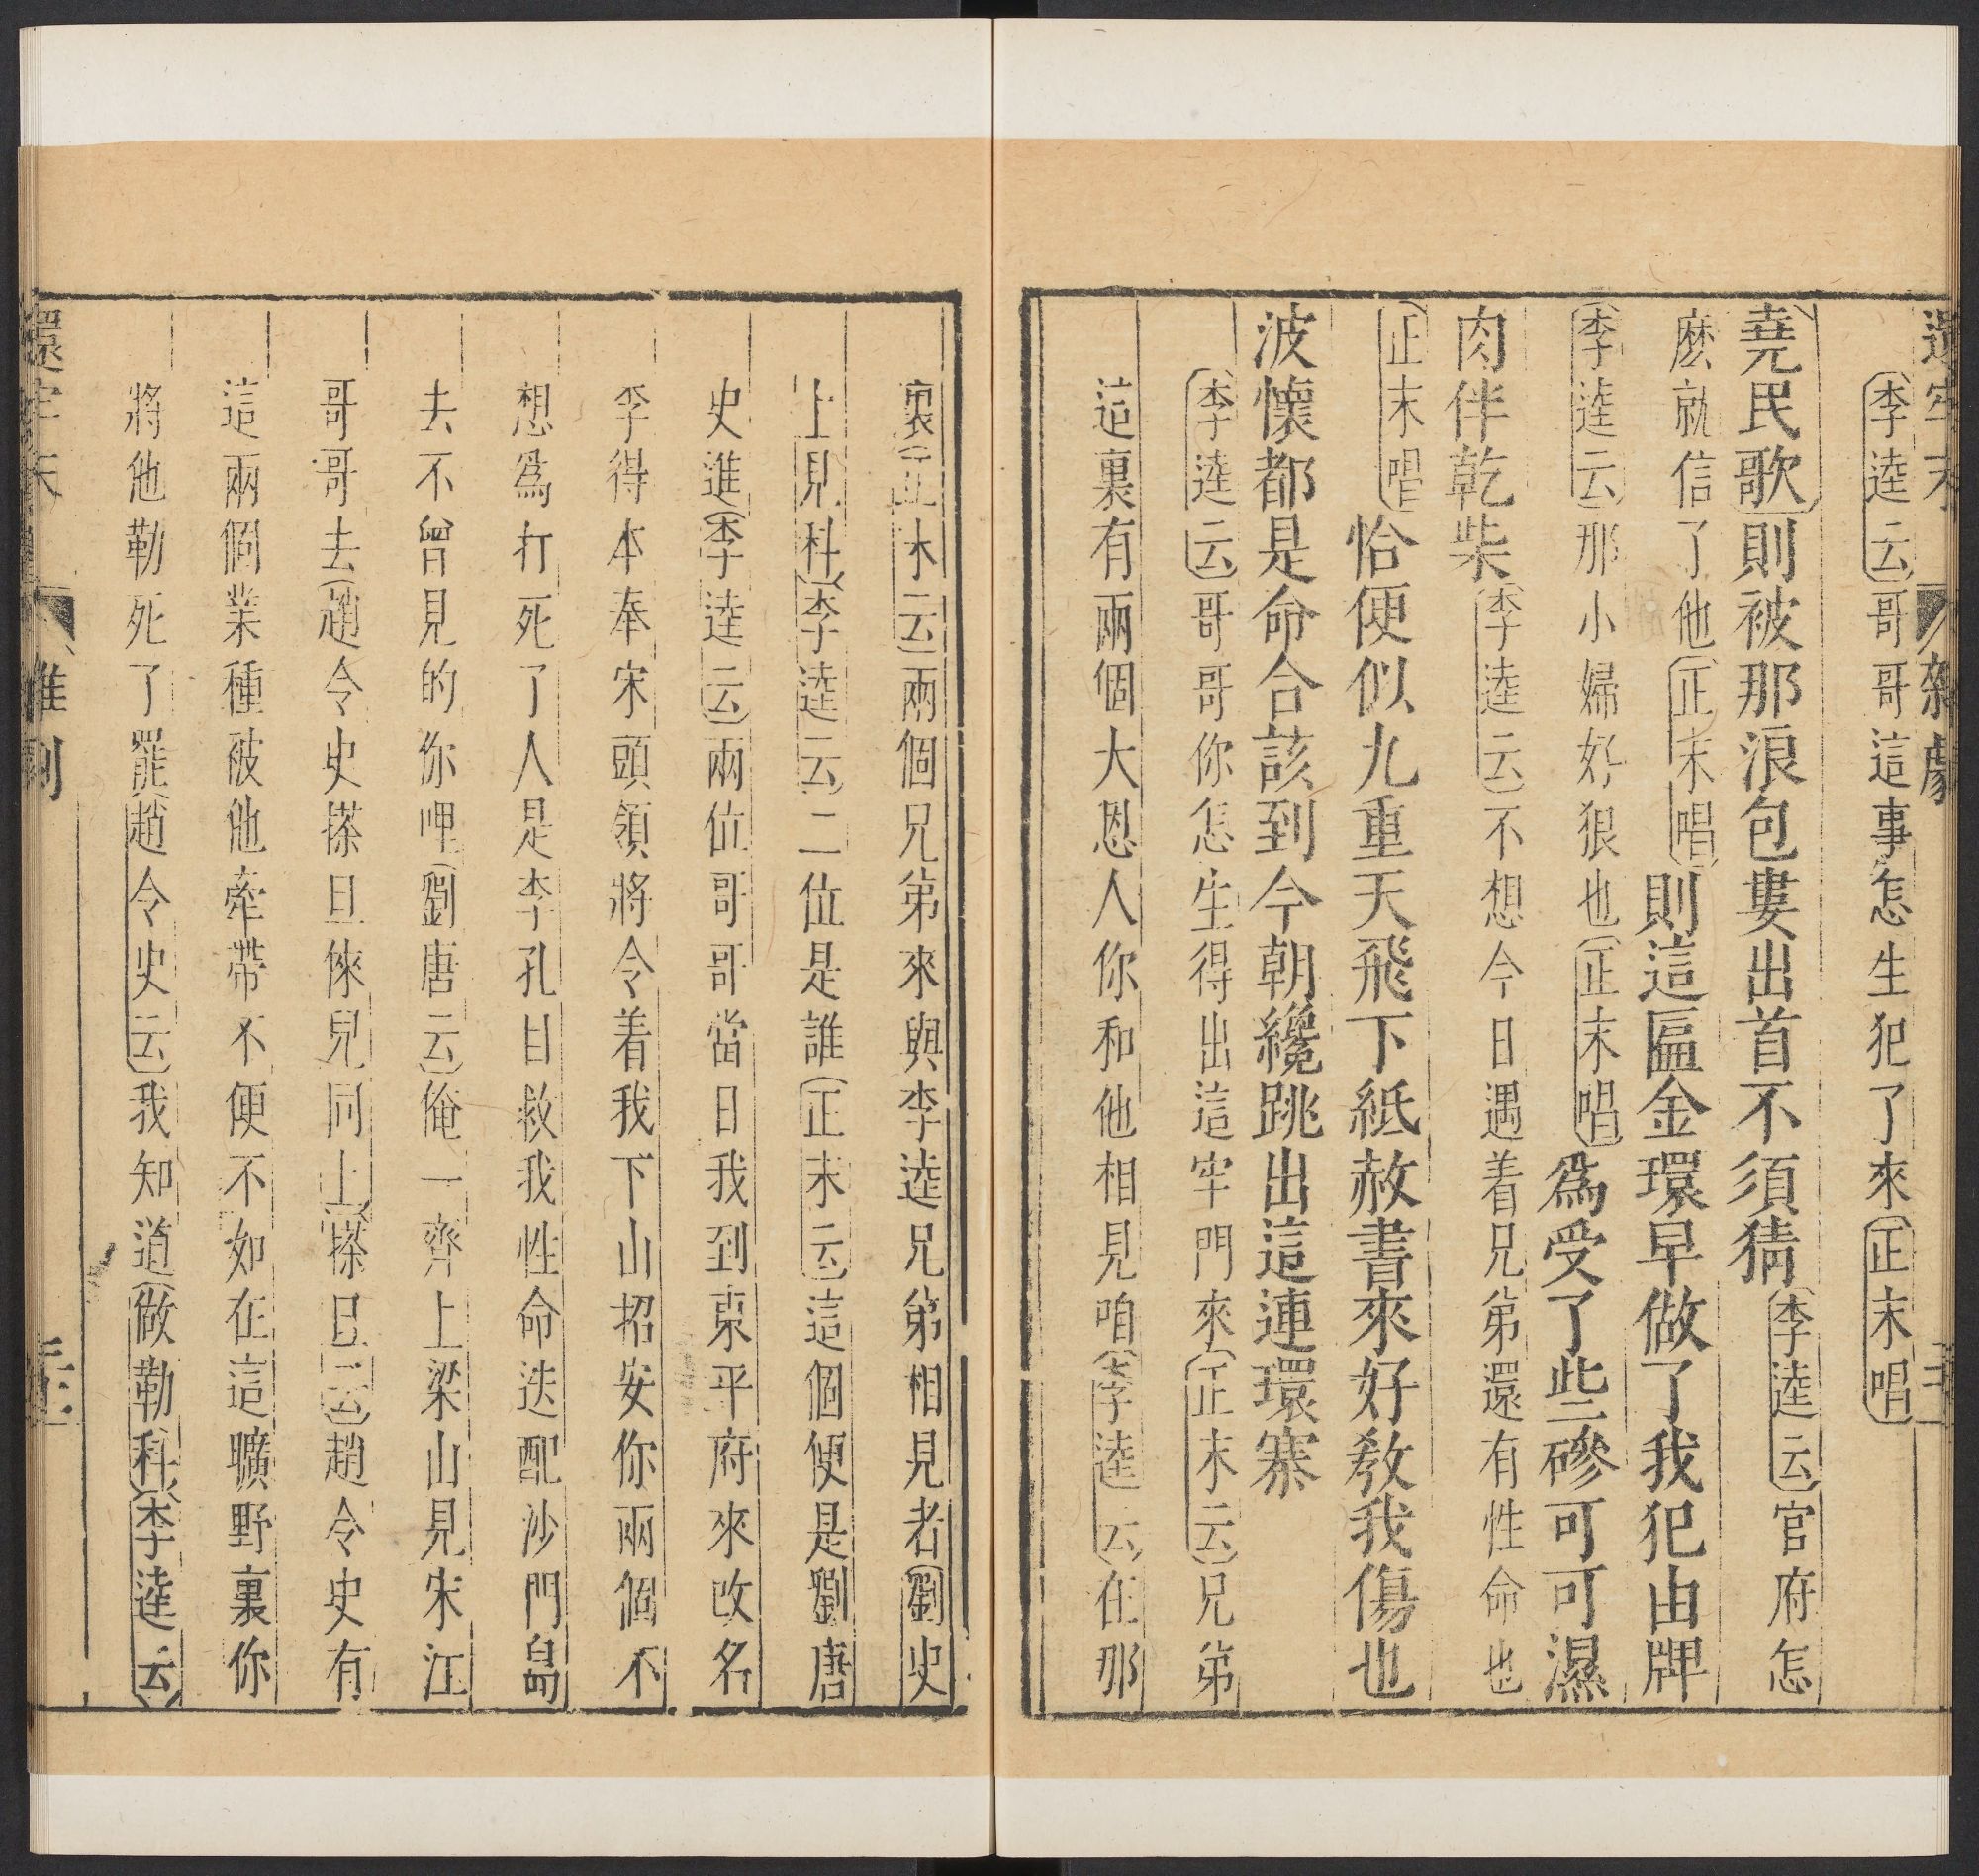 還牢末 雜劇
李逵云哥哥這事怎生犯了來正末唱
堯民歌則被那浪包婁出首不須猜李逵云官府怎
麽就信了他正末唱則這匾金環早做了我犯由牌
李逵云那小婦好狠也正末唱爲受了些磣可可濕
肉伴乾柴李逵云不想今日遇着兄弟還有性命也
正末唱恰便似九重天飛下紙赦書來好教我傷也
波懷都是命合該到今朝纔跳出這連環寨
李逵云哥哥你怎生得出這牢門來正末云兄弟
這裏有兩個大恩人你和他相見咱李逵云在那
裏正末云兩個兄弟來與李逵兄弟相見者劉史
上見科李逵云二位是誰正末云這個便是劉唐
史進李逵云兩位哥哥當日我到東平府來改名
李得本奉宋頭領將令着我下山招安你兩個不
想爲打死了人是李孔目救我性命迭配沙門島
去不曾見的你哩劉唐云俺一齊上梁山見宋江
哥哥去趙令史搽旦倈兒同上搽旦云趙令史有
這兩個業種被他牽帶不便不如在這曠野裏你
將他勒死了罷趙令史云我知道做勒科李逵云
還牢末 雜劇